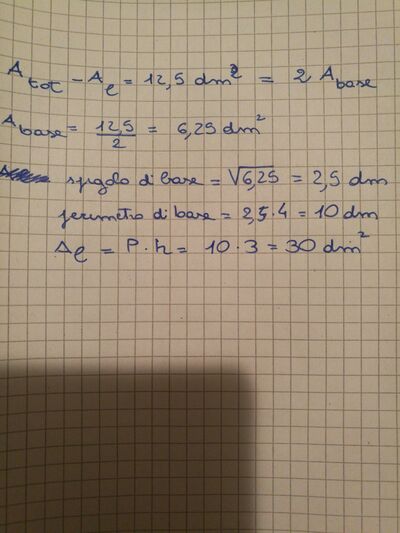 A tot - A l = 12,5 dm² = 2 A base
A base = 12,5/2 = 6,25 dm²
spigolo di base = √6,25 = 2,5 dm
perimetro di base = 2,5 · 4 = 10 dm
A l = P · h = 10 · 3 = 30 dm²